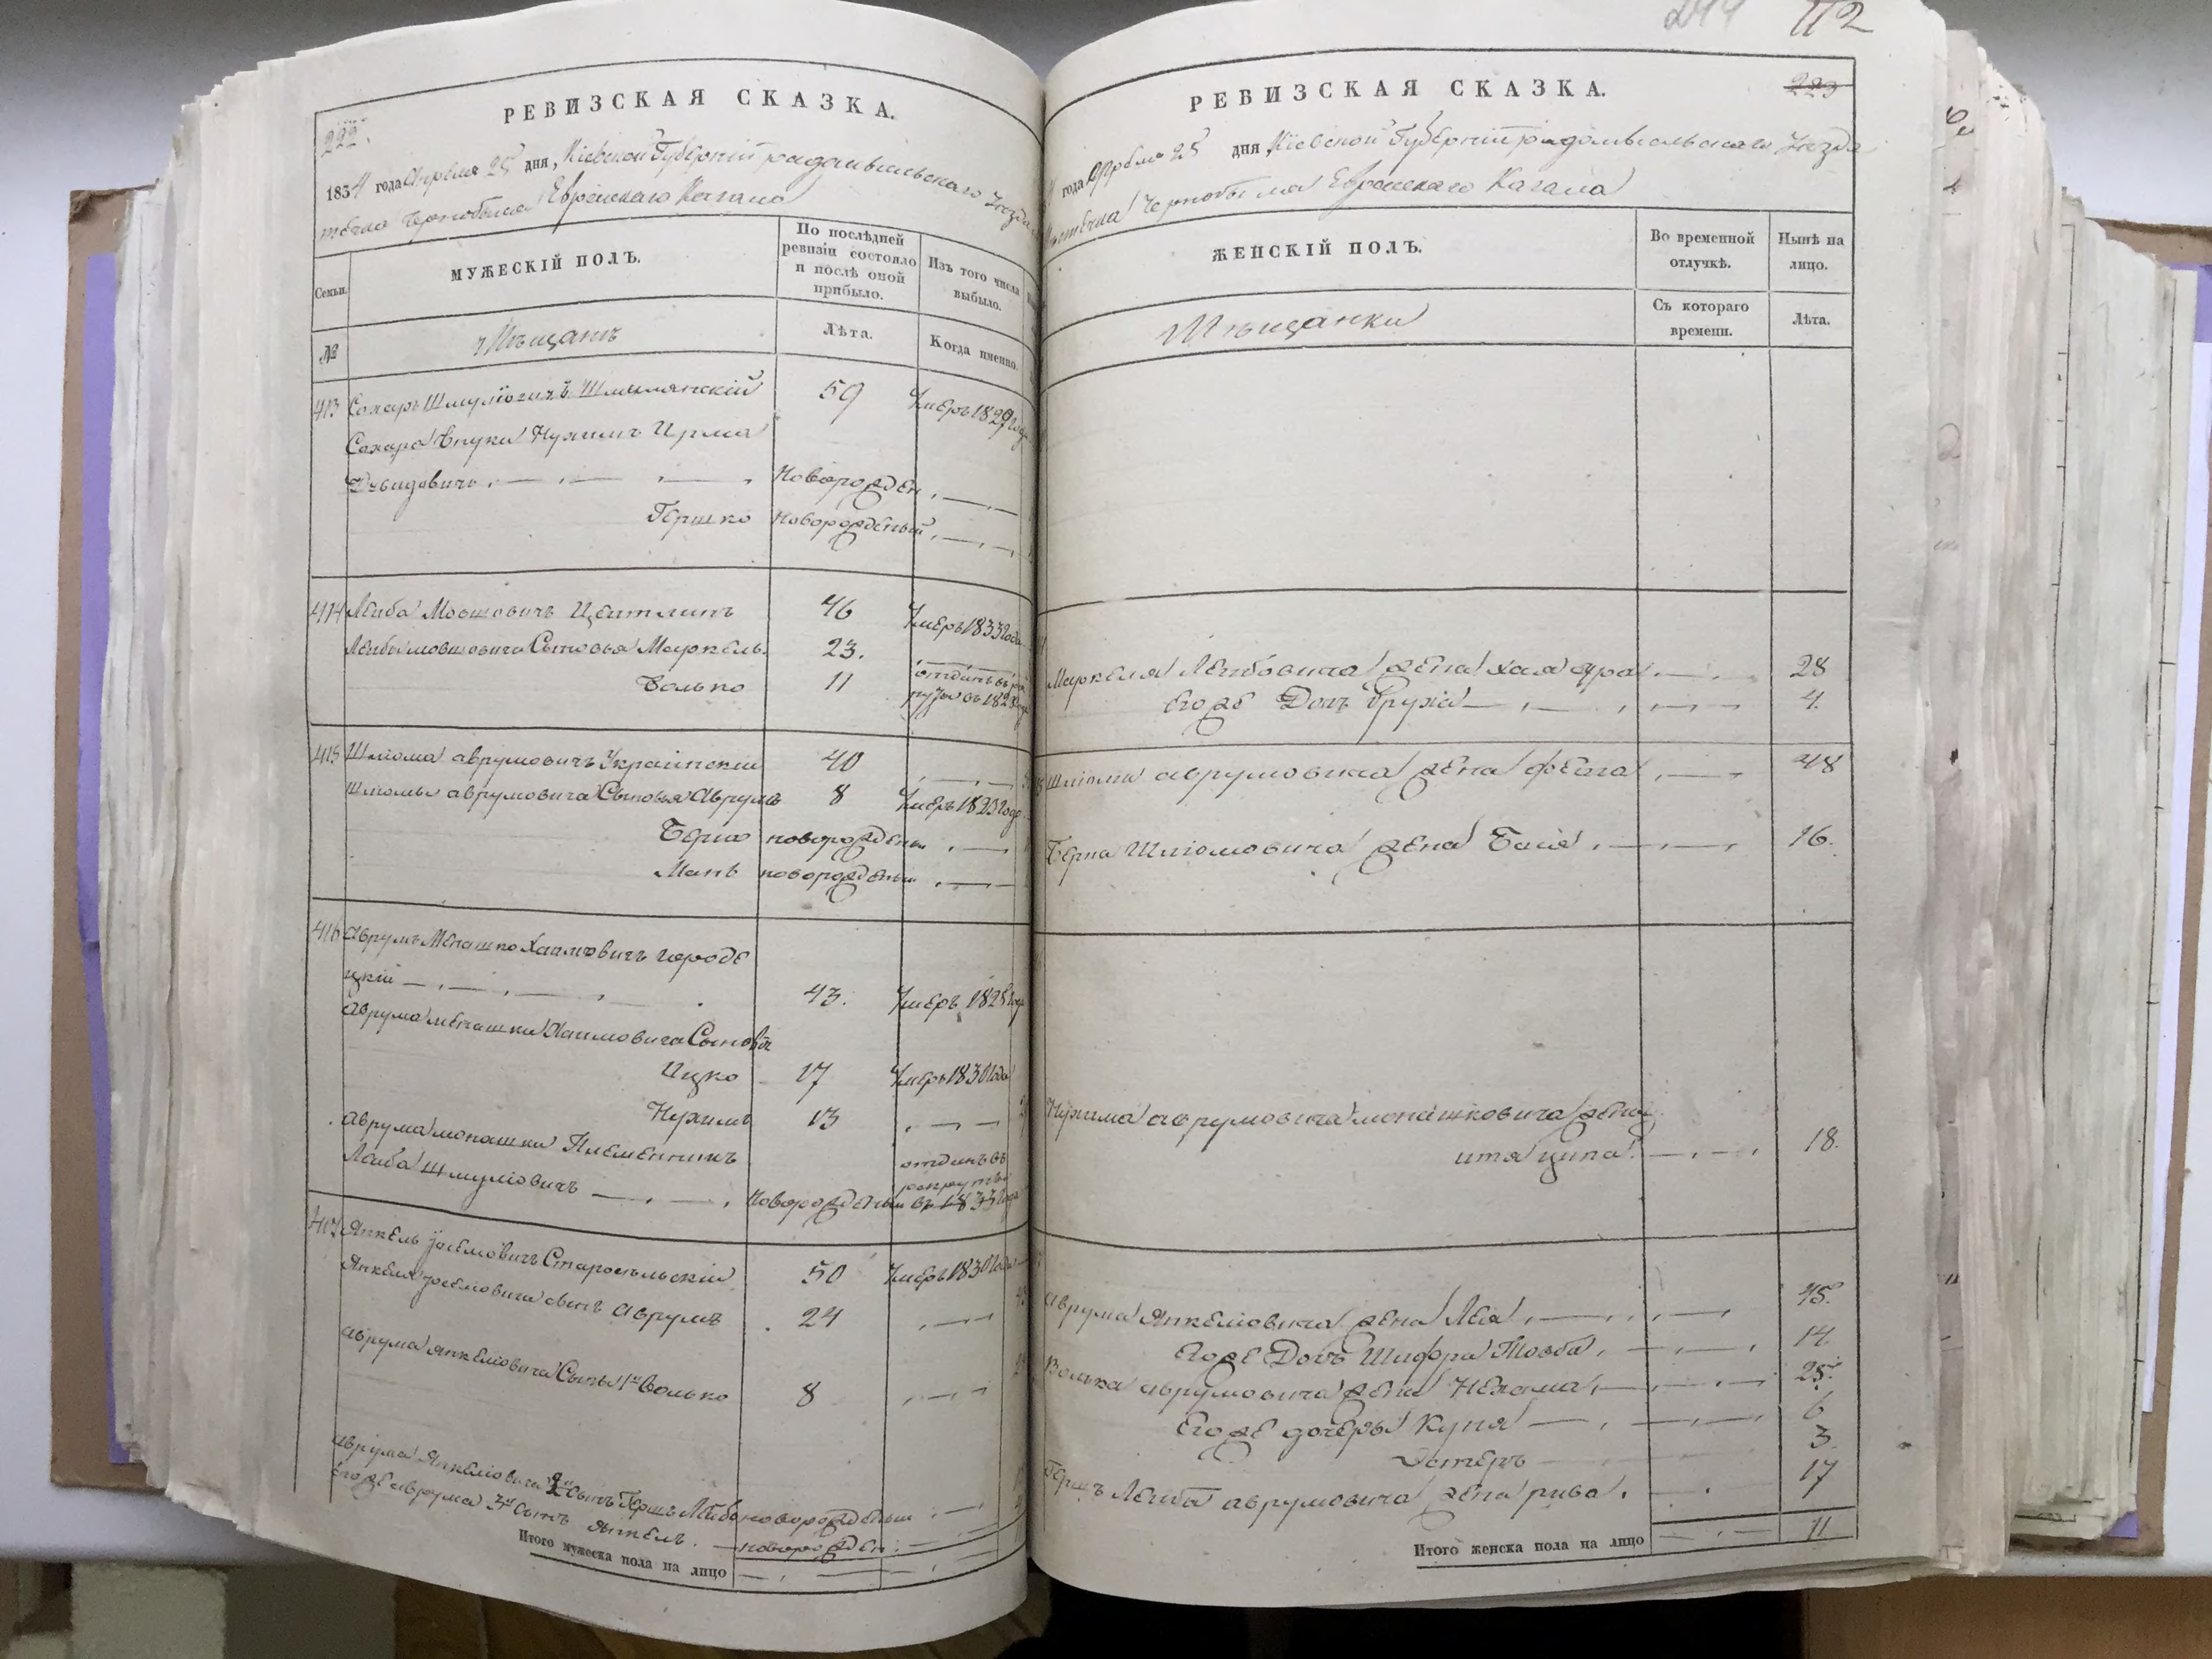 222.
РЕВИЗСКАЯ СКАЗКА.
1834 года Апреля 25 дня, Кіевской Губерніи радомысльскаго Уезда
течка Чернобыля Еврейскаго Кагала
Семьи.
МУЖЕСКІЙ ПОЛЪ.
По послѣдней ревизіи состояло и послѣ оной прибыло.
Изъ того числа выбыло.
№
Мѣщанъ
Лѣта.
Когда именно.
413 Сохаръ Шмуліовичъ 59 Умеръ 1829 года
Сохара внуки Нухимъ
Дувидовичъ новорожден.
Гершко новорожденый
414 Лейба Мовшовичъ Цейтлинъ 46 Умеръ 1833 года
Лейбы мовшовича Сыновья Меркель. 23.
Волько 11 отданъ въ рекруты въ 1828
415 Шліома аврумовичъ Украинскій 40
Шліомы аврумовича Сыновья Аврумъ 8 Умеръ 1823 года
Берко новорожденый
Мань новорожденый
416 аврумъ Менашко Хаимовичъ городе
цкій 43. Умеръ 1825 года
аврума менашки Хаимовича Сыновья
Ицко 17 Умеръ 1830 года
Нухимъ 13
аврума монашки Племенникъ
Лейба Шмуліовичъ новорожденый отданъ въ рекруты въ 1833 года
417 Янкель Старосельскій 50 Умеръ 1830 года
Янкеля сынъ аврумъ 24
аврума янкеліовича Сынъ 1й Волько 8
аврума Янкеліовича 2й Сынъ Гершъ Лейба новорожденый
Егоже аврума 3й Сынъ янкель. новорожден.
Итого мужеска пола на лицо
112
223
РЕВИЗСКАЯ СКАЗКА.
года Апреля 25 дня, Кіевской Губерніи радомысльскаго Уезда
местечка Чернобыля Еврейскаго Кагала
ЖЕНСКІЙ ПОЛЪ.
Во временной отлучкѣ.
Нынѣ на лицо.
Мѣщанки
Съ котораго времени.
Лѣта.
Меркеля Лейбовича жена хая 28
Егоже Дочь Бруха 4
Шліомы аврумовича жена фейга 48
Берка Шліомовича жена Бася 16.
Нухима аврумовича монашковича жена
ципа 18.
аврума Янкеліовича жена Лея 45.
Егоже Дочь Шифра Товба 14.
Волька аврумовича жена Нехама 25.
Егоже дочеры Куня 6
Эстеръ 3.
Гершъ Лейба аврумовича жена рива. 17
Итого женска пола на лицо 11